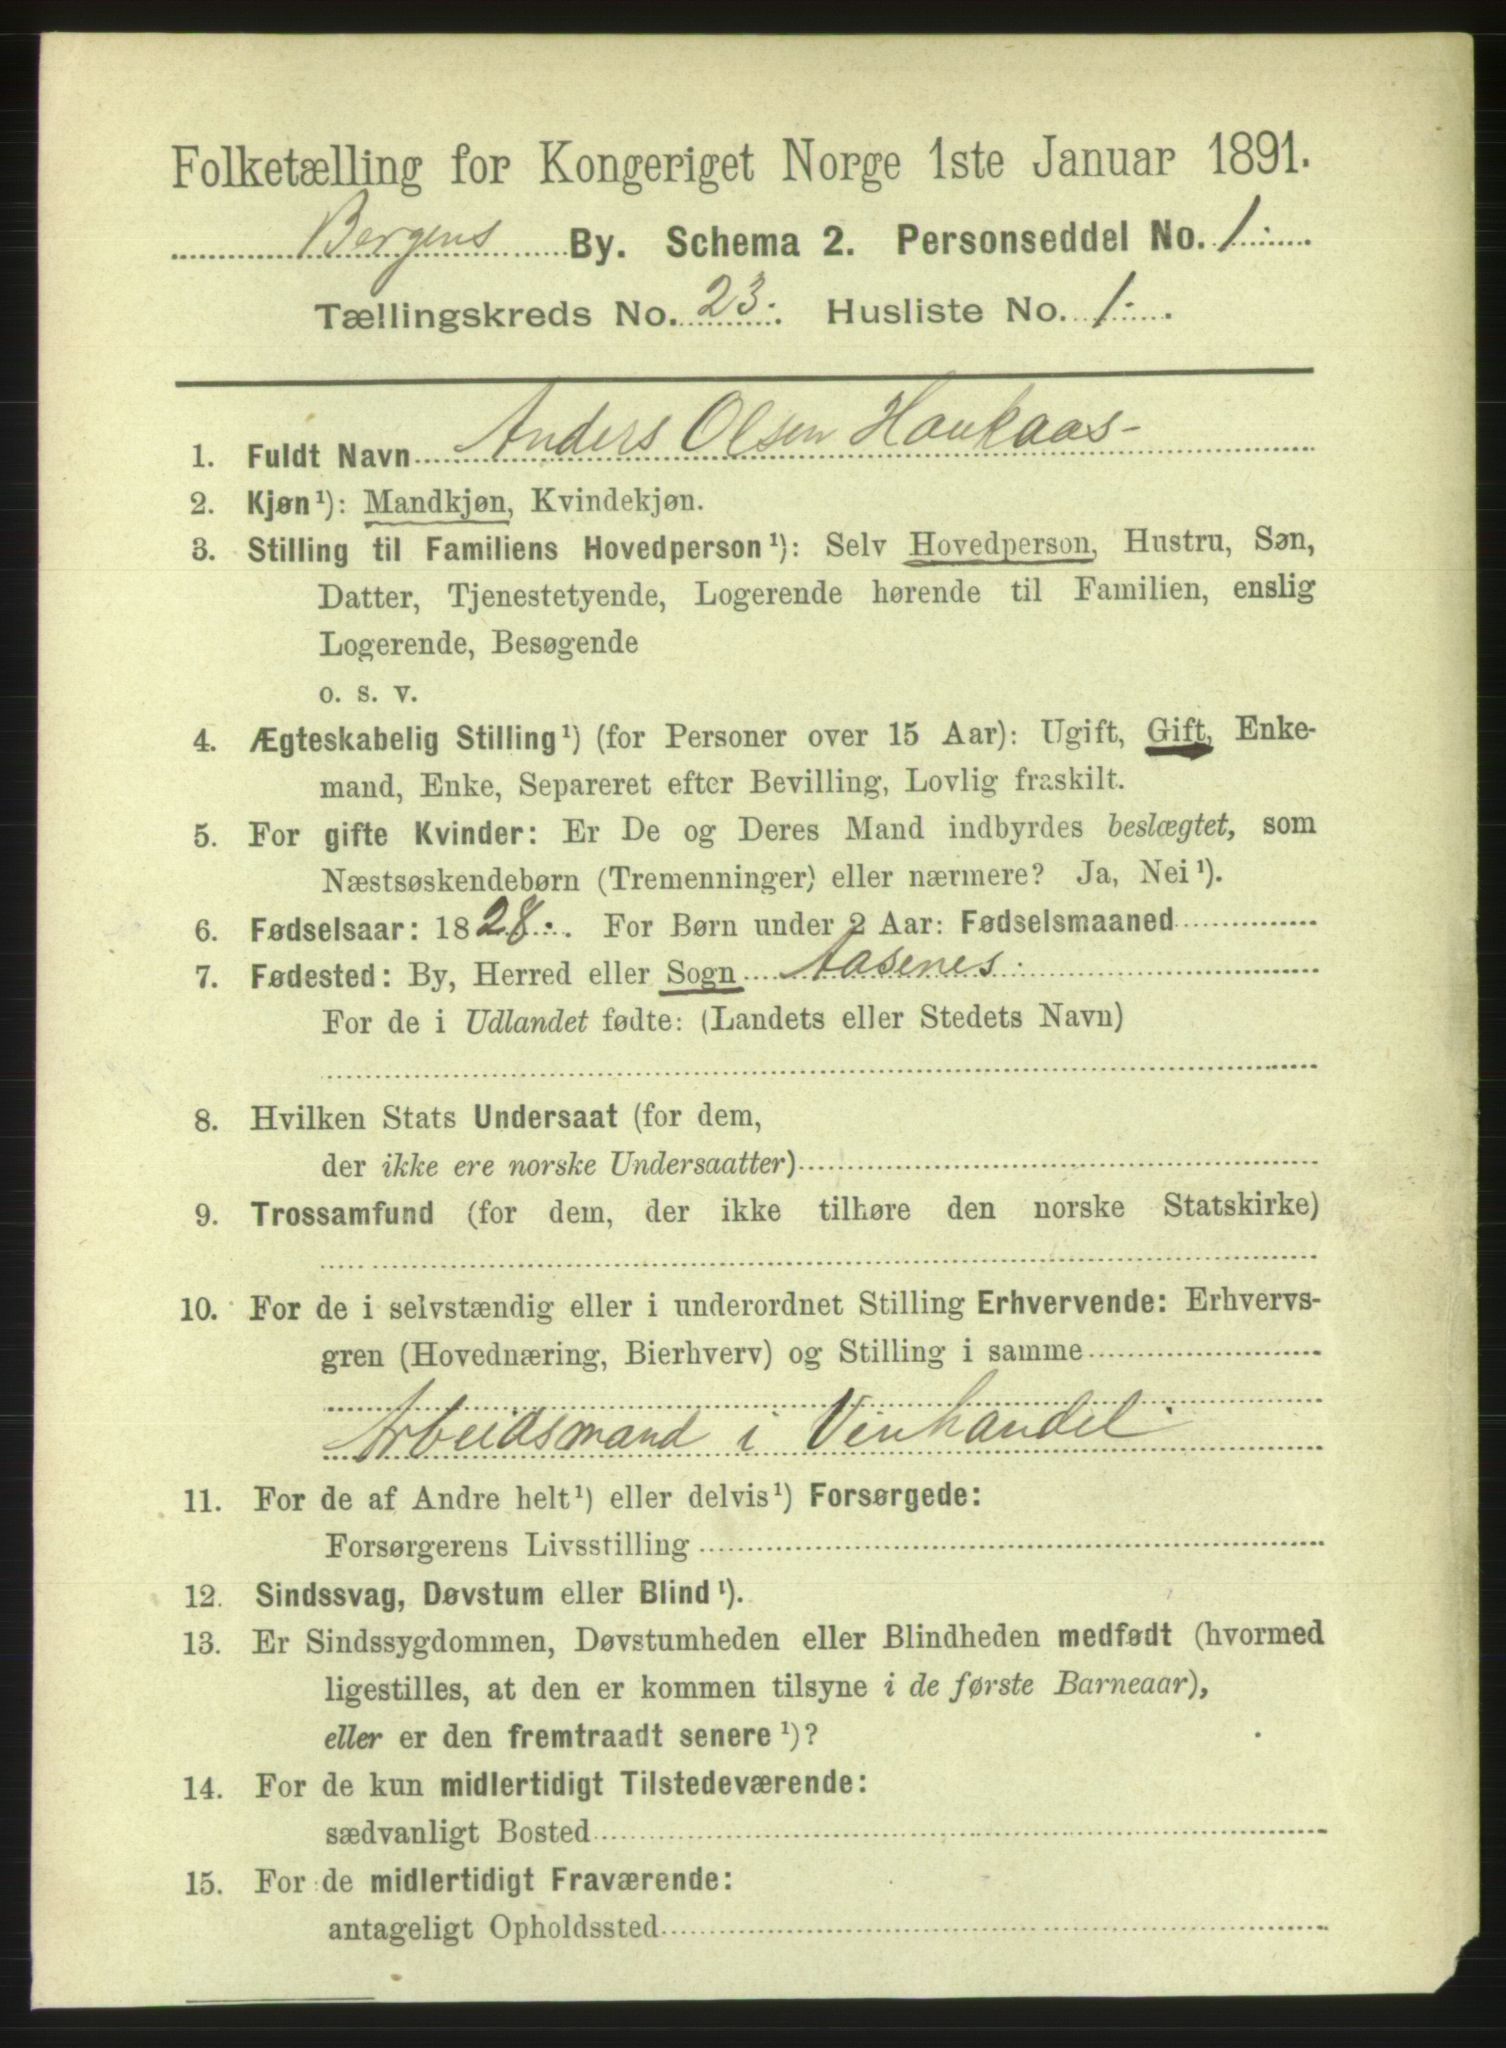 Folketælling for Kongeriget Norge 1ste Januar 1891.
Bergens By. Schema 2. Personseddel No. 1.
Tællingskreds No. 23. Husliste No. 1.
1. Fuldt Navn Anders Olsen Haukaas
2. Kjøn¹): Mandkjøn, Kvindekjøn.
3. Stilling til Familiens Hovedperson¹): Selv Hovedperson, Hustru, Søn,
Datter, Tjenestetyende, Logerende hørende til Familien, enslig
Logerende, Besøgende
o. s. v.
4. Ægteskabelig Stilling¹) (for Personer over 15 Aar): Ugift, Gift, Enke-
mand, Enke, Separeret efter Bevilling, Lovlig fraskilt.
5. For gifte Kvinder: Er De og Deres Mand indbyrdes beslægtet, som
Næstsøskendebørn (Tremenninger) eller nærmere? Ja, Nei¹).
6. Fødselsaar: 1828. For Børn under 2 Aar: Fødselsmaaned
7. Fødested: By, Herred eller Sogn Aasenes
For de i Udlandet fødte: (Landets eller Stedets Navn)
8. Hvilken Stats Undersaat (for dem,
der ikke ere norske Undersaatter)
9. Trossamfund (for dem, der ikke tilhøre den norske Statskirke)
10. For de i selvstændig eller i underordnet Stilling Erhvervende: Erhvervs-
gren (Hovednæring, Bierhverv) og Stilling i samme
Arbeidsmand i Vinhandel
11. For de af Andre helt¹) eller delvis¹) Forsørgede:
Forsørgerens Livsstilling
12. Sindssvag, Døvstum eller Blind¹).
13. Er Sindssygdommen, Døvstumheden eller Blindheden medfødt (hvormed
ligestilles, at den er kommen tilsyne i de første Barneaar),
eller er den fremtraadt senere¹)?
14. For de kun midlertidigt Tilstedeværende:
sædvanligt Bosted
15. For de midlertidigt Fraværende:
antageligt Opholdssted